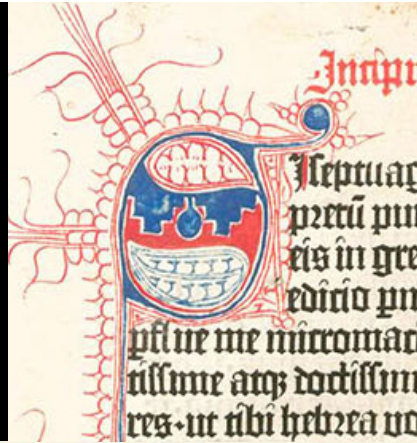 Incipi
SI septuag
pretū pur
eis in gre
edicio pm
pflue me micromac
tissime atqꝫ doctissim
res·ut tibi hebrea vo